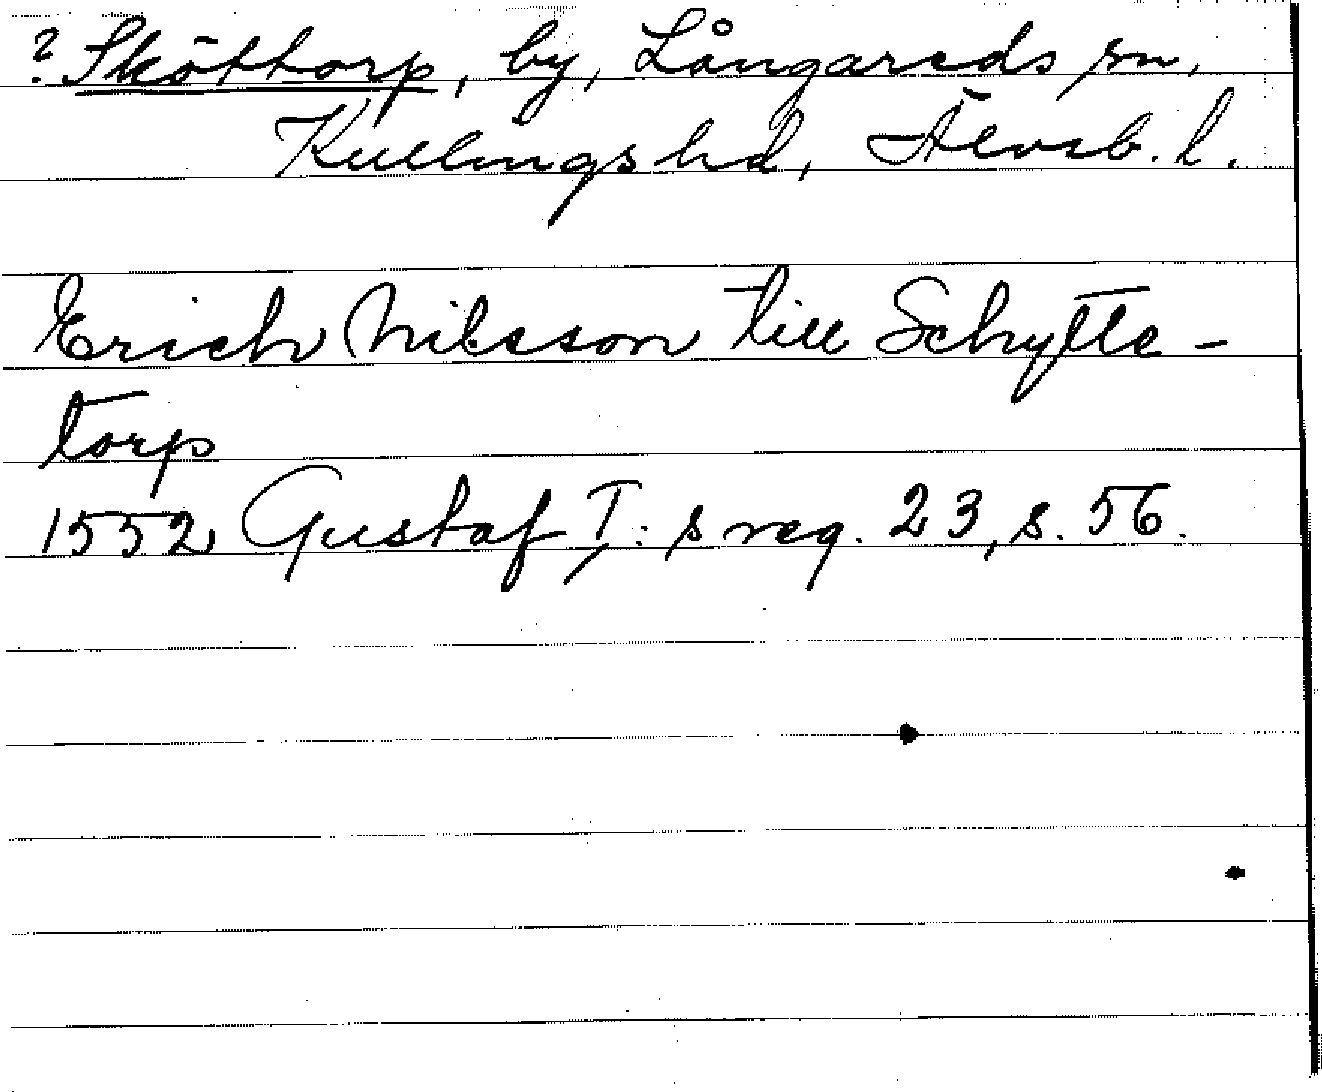 ? Sköttorp, by, Långareds sn,
Kullings hd, Älvsb. l.
Erich Nilsson till Schytte-
torp
1552 Gustaf I:s reg. 23, s. 56.